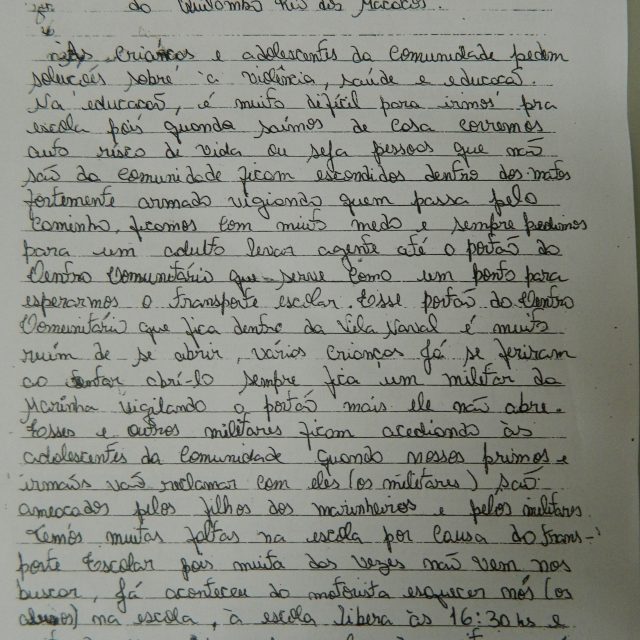 do Quilombo Rio dos Macacos.
nós crianças e adolescentes da comunidade pedem
soluções sobre a violência, saúde e educação.
Na educação, é muito dificil para irmos pra
escola pois quando saímos de casa corremos
auto risco de vida ou seja pessoas que não
são da comunidade ficam escondidos dentro dos matos
fortemente armado vigiando quem passa pelo
caminho, ficamos com muito medo e sempre pedimos
para um adulto levar agente até o portão do
Centro Comunitário que serve como um ponto para
esperarmos o transporte escolar. Esse portão do Centro
Comunitário que fica dentro da Vila Naval é muito
ruim de se abrir, vários crianças já se feriram
ao tentar abrí-lo sempre fica um militar da
Marinha vigilando o portão mais ele não abre.
Esses e outros militares ficam acediando às
adolescentes da comunidade quando nossos primos e
irmãos vão reclamar com eles (os militares) são
ameaçados pelos filhos dos marinheiros e pelos militares.
Temos muitas faltas na escola por causa do trans-
porte Escolar pois muita das vezes não vem nos
buscar, já aconteceu do motorista esquecer nós (os
alunos) na escola, à escola libera às 16:30 hs e